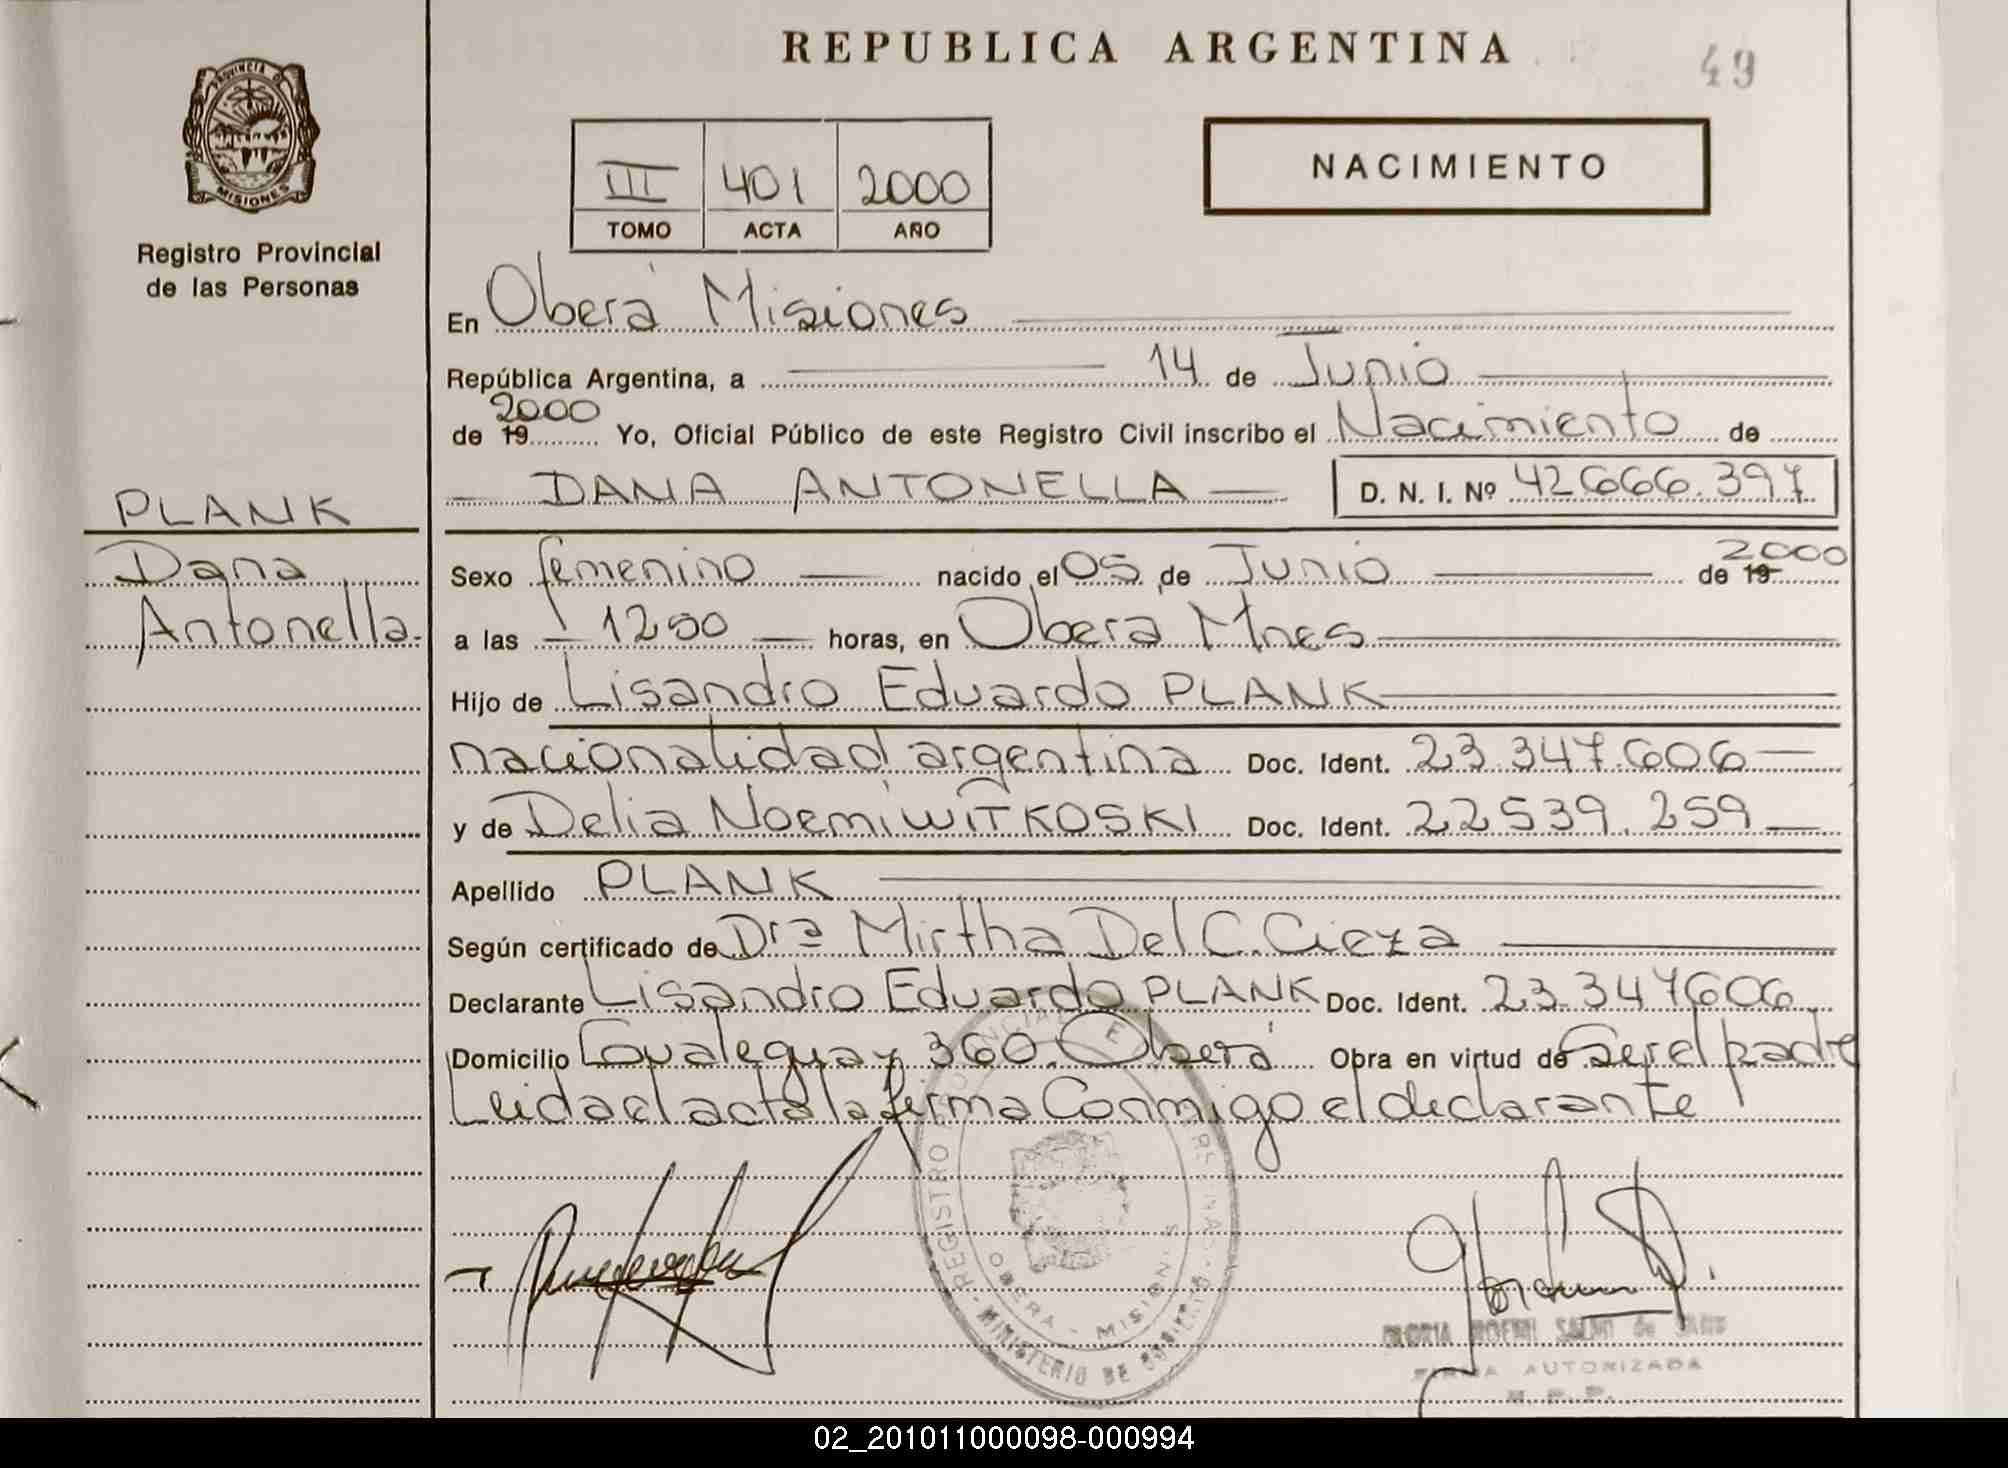 REPUBLICA ARGENTINA
49
PROVINCIA DE
MISIONES
Registro Provincial
de las Personas
III 401 2000
TOMO ACTA AÑO
NACIMIENTO
En Oberá Misiones
República Argentina, a 14 de Junio
2000
de 19 Yo, Oficial Público de este Registro Civil inscribo el Nacimiento de
DANA ANTONELLA D. N. I. Nº 42666.397
PLANK
Dana
Antonella.
Sexo femenino nacido el 05 de Junio de 19 2000
a las 1200 horas, en Obera Mnes
Hijo de Lisandro Eduardo PLANK
nacionalidad argentina Doc. Ident. 23.347.606
y de Delia Noemi WITKOSKI Doc. Ident. 22539.259
Apellido PLANK
Según certificado de Drª Mirtha Del C. Cieza
Declarante Lisandro Eduardo PLANK Doc. Ident. 23.347606
Domicilio Gualeguay 360. Oberá Obra en virtud de Ser el padre
Leida el acta la firma Conmigo el declarante
REGISTRO
OBERA - MISIONES
MINISTERIO DE
GLORIA NOEMI
FIRMA AUTORIZADA
02_201011000098-000994